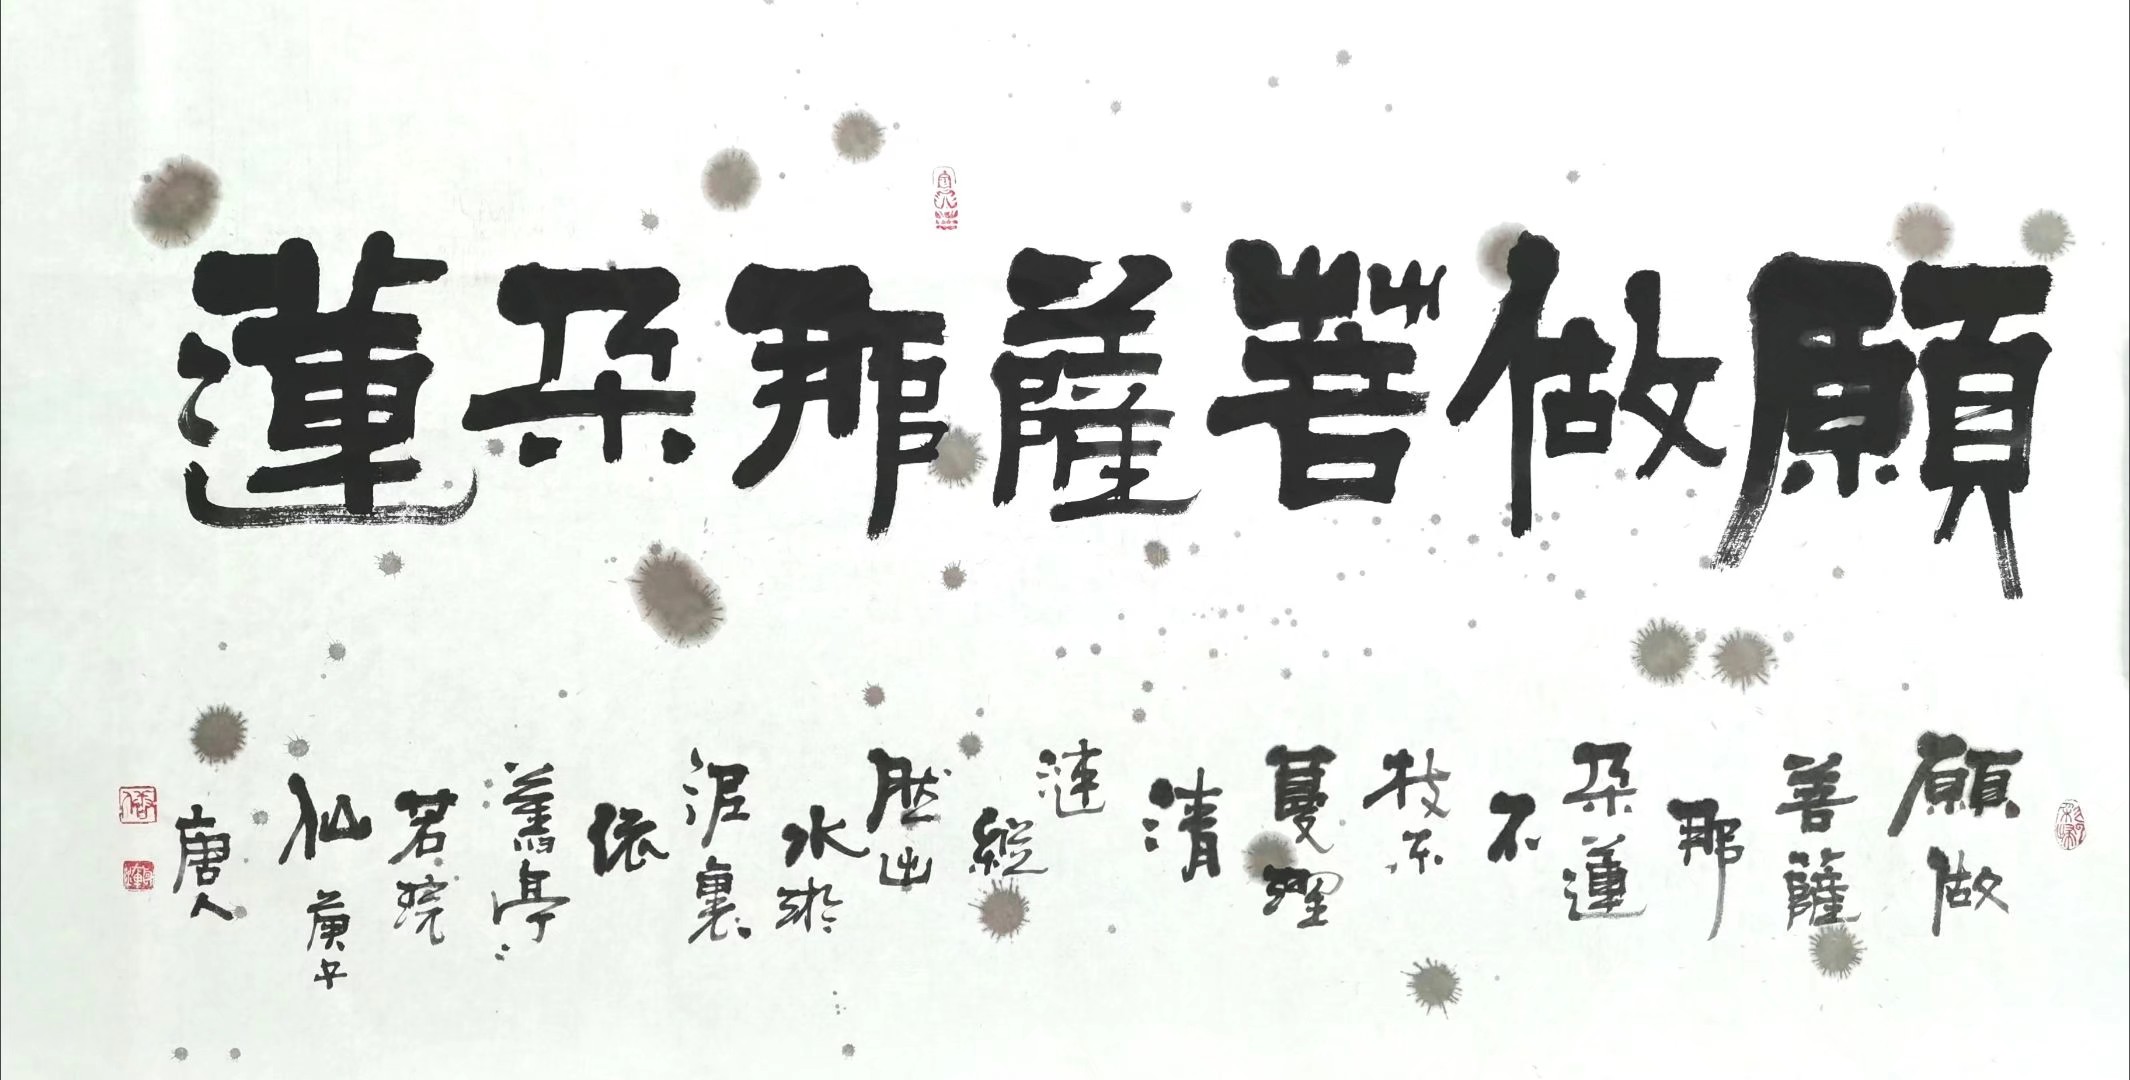 願做菩薩那朵蓮
願做
菩薩
那
朵蓮
不
枝不
蔓濯
清
漣
縱
然出
水淤
泥裏
依
舊亭〻
若浣
仙
庚子
唐人